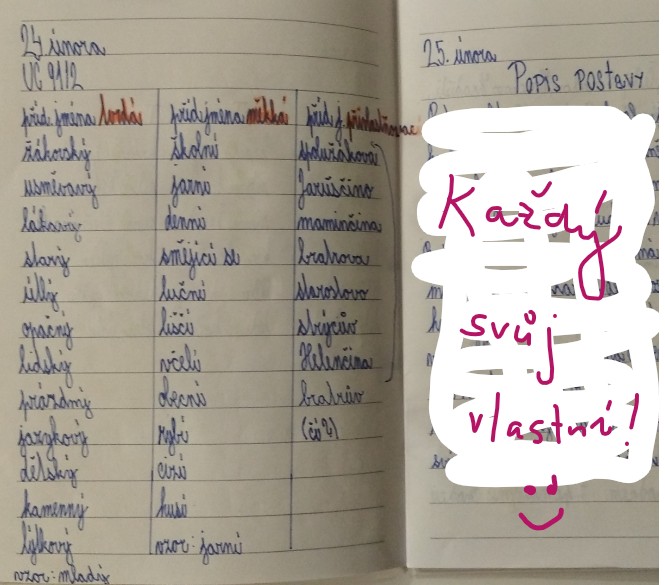 24. února
UČ 91/2
příd. jména tvrdá
žákovský
usměvavý
lákavý
starý
útlý
opačný
lidský
prázdný
jazykový
dětský
kamenný
lýkový
vzor: mladý
příd. jména měkká
školní
jarní
denní
smějící se
luční
liščí
včelí
obecní
rybí
cizí
husí
vzor: jarní
příd. j. přivlastňovací
spolužákova
Jaruščino
maminčina
bratrova
starostovo
strýcův
Helenčina
bratrův
(čí?)
25. února
Popis postavy
Každý
svůj
vlastní!